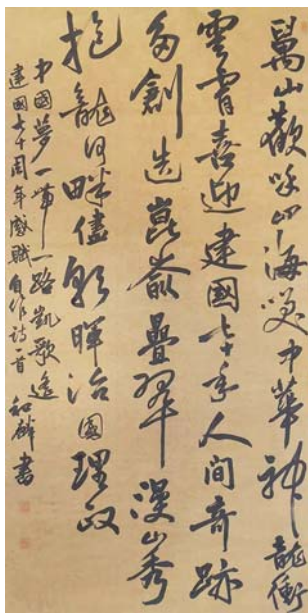 萬山歡呼四海笑中華神龍衝
雲霄喜迎建國七十年人間奇跡
多創造崑崙疊翠漫山秀
龍河畔儘朝暉治國理政
中國夢一带一路凱歌遥
建國七十周年感賦自作诗一首 和麟書